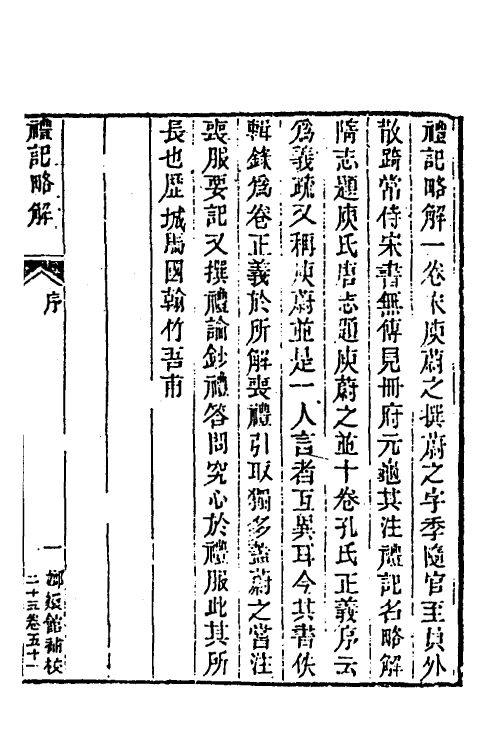 禮記略解一卷宋庾蔚之撰蔚之字季隨官至員外
散騎常侍宋書無傳見冊府元龜其注禮記名略解
隋志題庾氏唐志題庾蔚之並十卷孔氏正義序云
爲義疏又稱庾蔚並是一人言者互異耳今其書佚
輯錄爲卷正義於所解喪禮引取獨多蓋蔚之嘗注
喪服要記又撰禮論鈔禮答問究心於禮服此其所
長也歷城馬國翰竹吾甫
禮記略解
序
一
嫏嬛館補校
二十五卷五十一